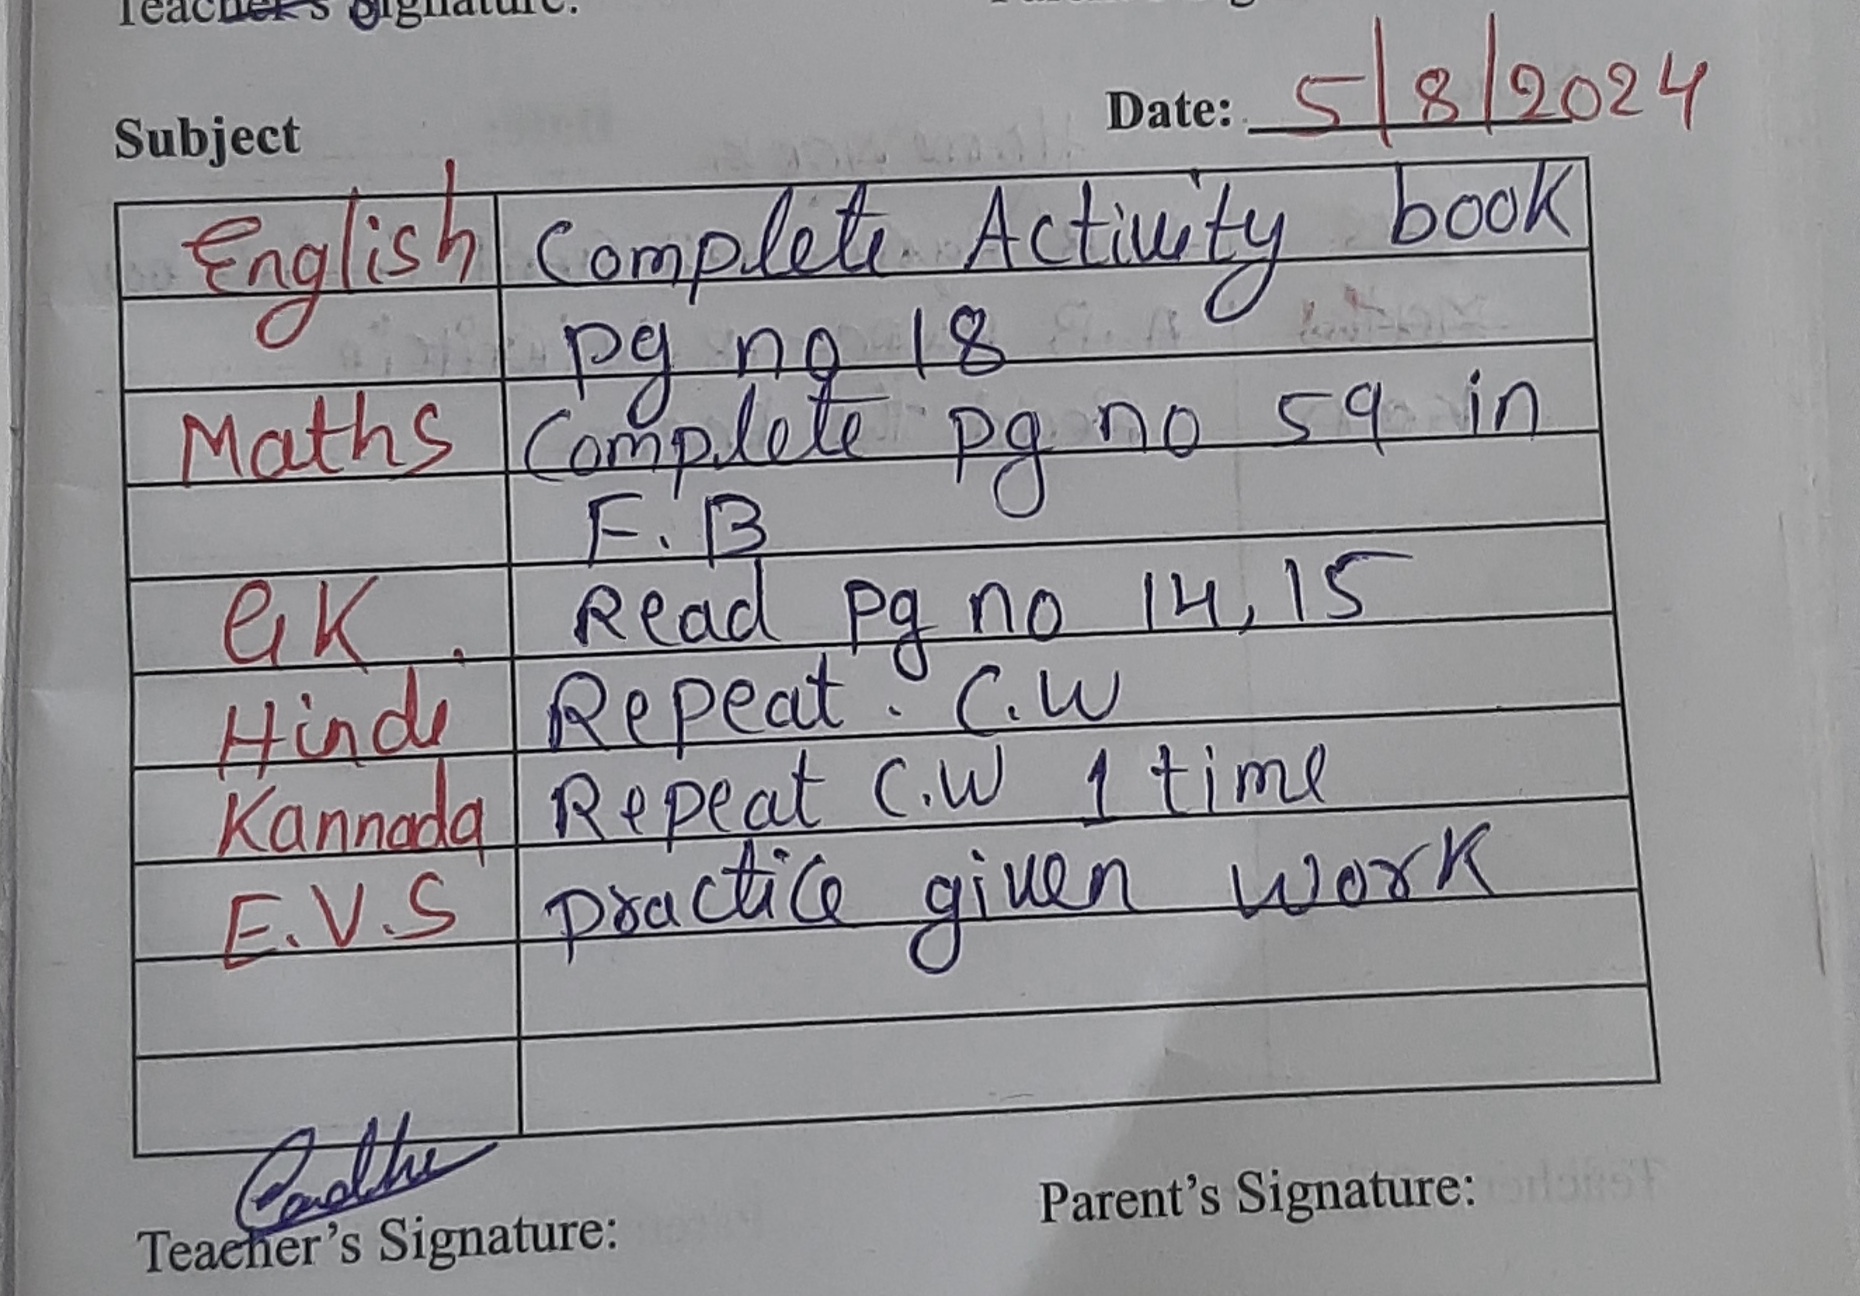 Teacher's Signature:
Date: 5/8/2024
Subject
English Complete Activity book
pg no 18
Maths Complete pg no 59 in
F.B
GK. Read pg no 14, 15
Hindi Repeat. C.W
Kannada Repeat C.W 1 time
E.V.S practice given work
Parent's Signature:
Teacher's Signature: